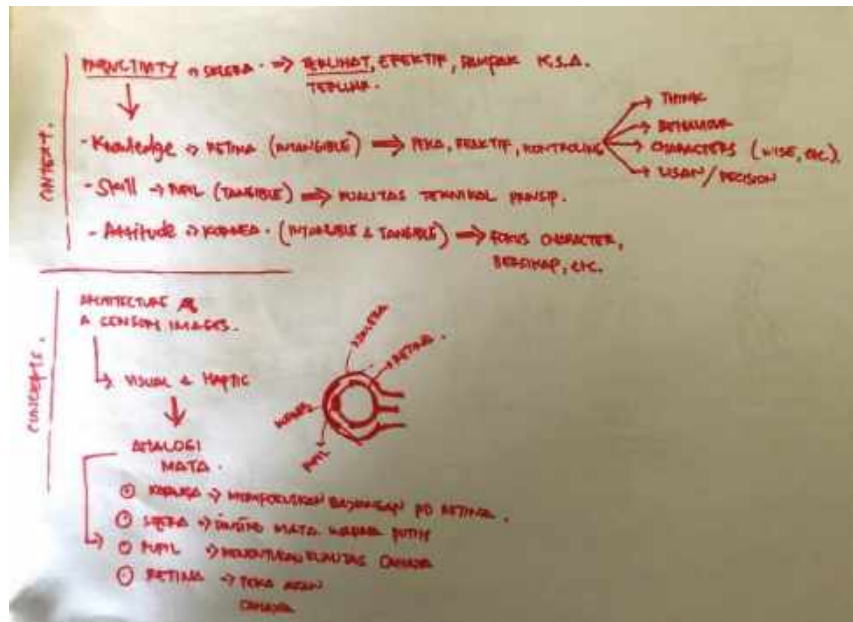 CONTEXT.
PRODUCTIVITY → SKLERA. ⇒ TERLIHAT, EFEKTIF, DAMPAK K.S.A.
- Knowledge → RETINA (INTANGIBLE) ⇒ PEKA, REAKTIF, KONTROLING
→ THINK
→ BEHAVIOUR
→ CHARACTERS (WISE, ETC).
→ LISAN / DECISION
- Skill → PUPIL (TANGIBLE) ⇒ KUALITAS TEKNIKAL PRINSIP.
- Attitude → KORNEA. (INTANGIBLE & TANGIBLE) ⇒ FOKUS CHARACTER,
BERSIKAP, etc.
CONCEPTS.
ARCHITECTURE
IMAGES.
VISUAL & HAPTIC
ANALOGI
MATA.
KORNEA → MEMFOKUSKAN BAYANGAN PD RETINA.
SKLERA → DINDING MATA WARNA PUTIH
PUPIL → MENENTUKAN KUALITAS CAHAYA
RETINA → PEKA AKAN
CAHAYA
SKLERA
RETINA.
KORNEA
PUPIL